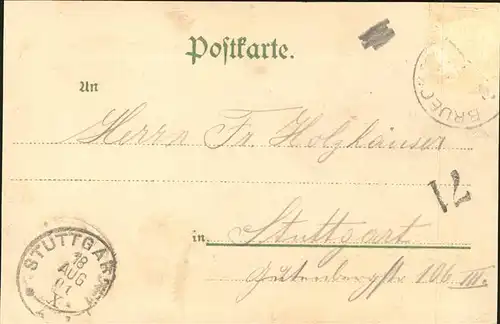 Postkarte.
BRUEC
An
Herrn Fr. Holzhäuser
71
in Stuttgart
Gutenbergstr 106 III.
STUTTGART
18
AUG
01
X.